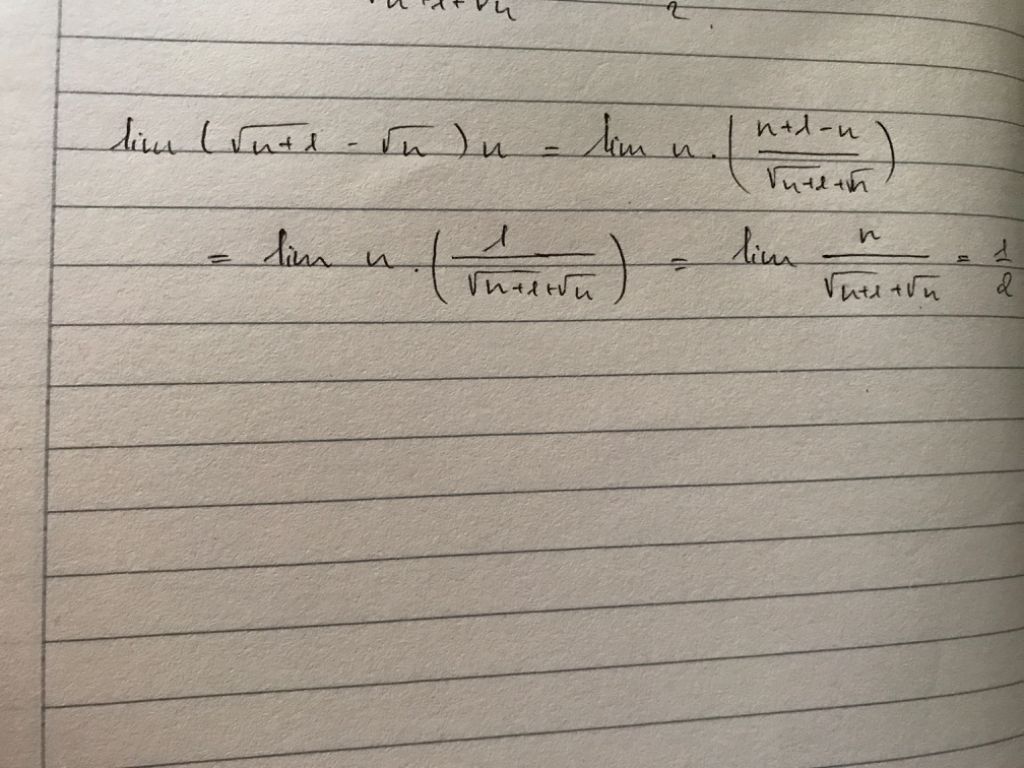 √n+1+√n 2.
lim (√n+1 - √n ) n = lim n . ( n+1-n / √n+1+√n )
= lim n . ( 1 / √n+1+√n ) = lim n / √n+1+√n = 1/2